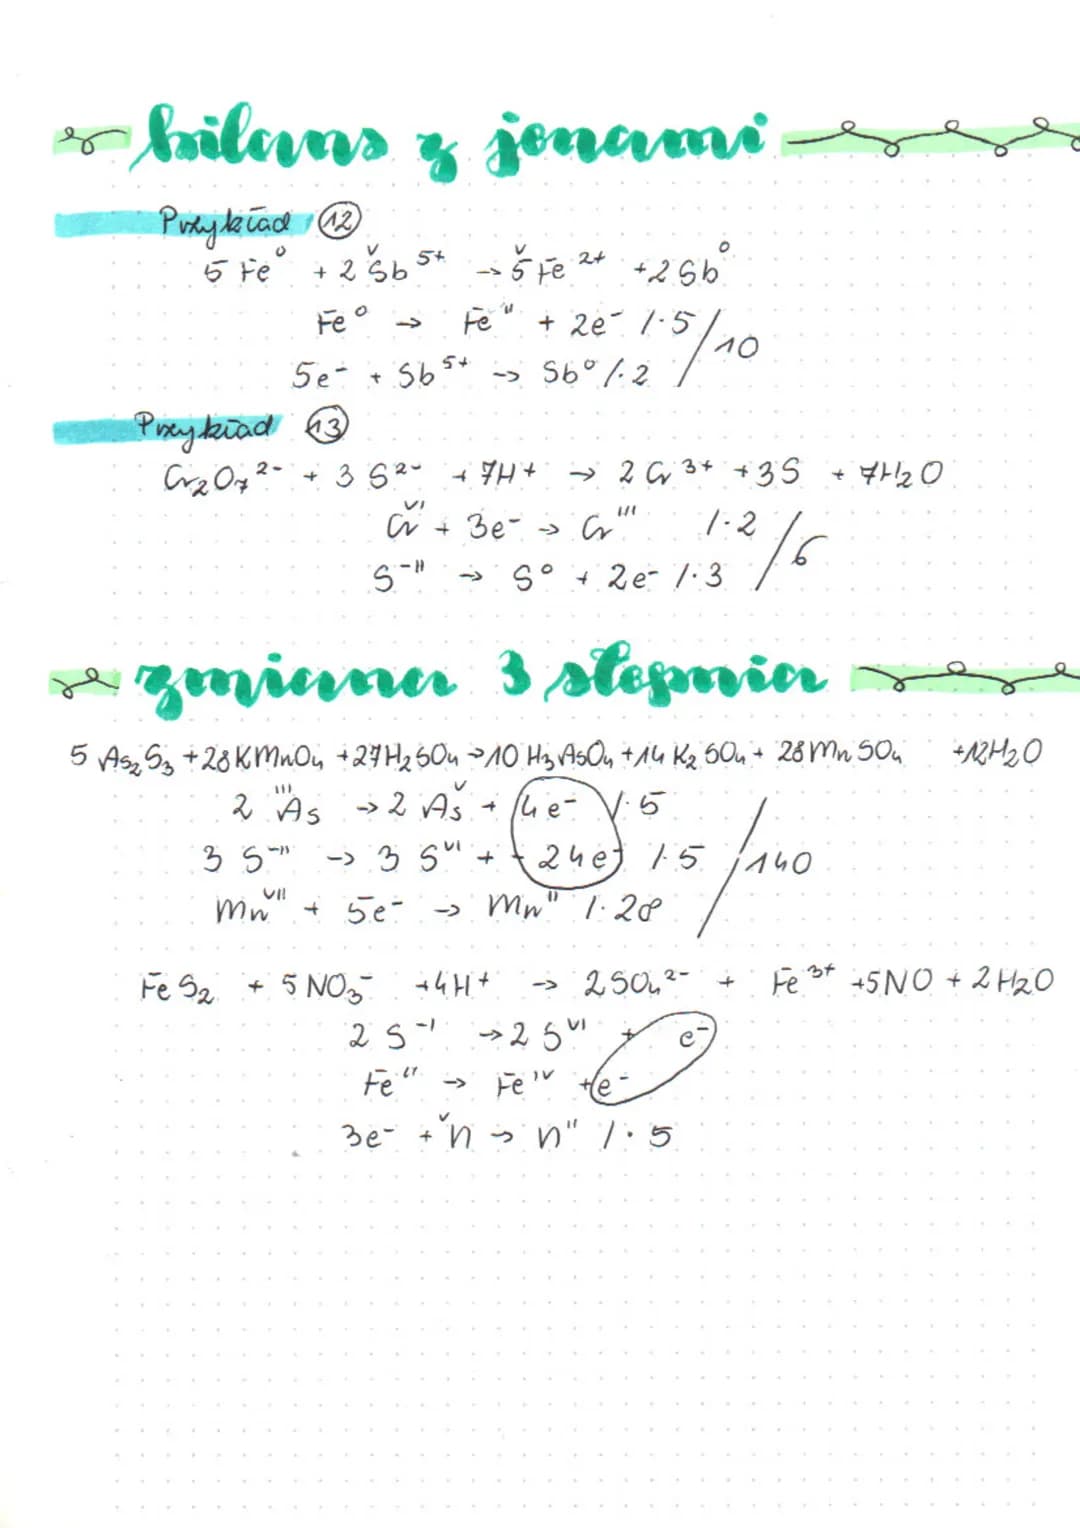 bilans z jonami
Przykład 12
5 Fe⁰ + 2 Sb⁵⁺ → 5 Fe²⁺ + 2 Sb⁰
Fe⁰ → Feᴵᴵ + 2e⁻ /·5 /10
5e⁻ + Sb⁵⁺ → Sb⁰ /·2
Przykład 13
Cr₂O₇²⁻ + 3 S²⁻ + 7H⁺ → 2 Cr³⁺ + 3S + 7H₂O
Crⱽᴵ + 3e⁻ → Crᴵᴵᴵ /·2 /6
S⁻ᴵᴵ → S⁰ + 2e⁻ /·3
zmiana 3 stopnia
5 As₂S₃ + 28KMnO₄ + 27H₂SO₄ → 10 H₃AsO₄ + 14 K₂SO₄ + 28MnSO₄ + 12H₂O
2 ᴵᴵᴵAs → 2 Asⱽ + 4e⁻ /·5
3 S⁻ᴵᴵ → 3 Sⱽᴵ + 24e⁻ /·5 /140
Mnⱽᴵᴵ + 5e⁻ → Mnᴵᴵ /·28
FeS₂ + 5NO₃⁻ + 4H⁺ → 2SO₄²⁻ + Fe³⁺ + 5NO + 2H₂O
2 S⁻ᴵ → 2 Sⱽᴵ + e⁻
Feᴵᴵ → Feᴵⱽ + e⁻
3e⁻ + ⱽn → nᴵᴵ /·5